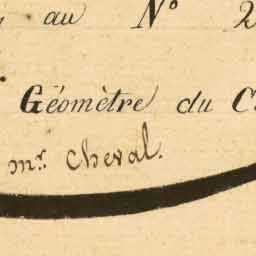 au N° 2
Géomètre du C
mr. Cheval.